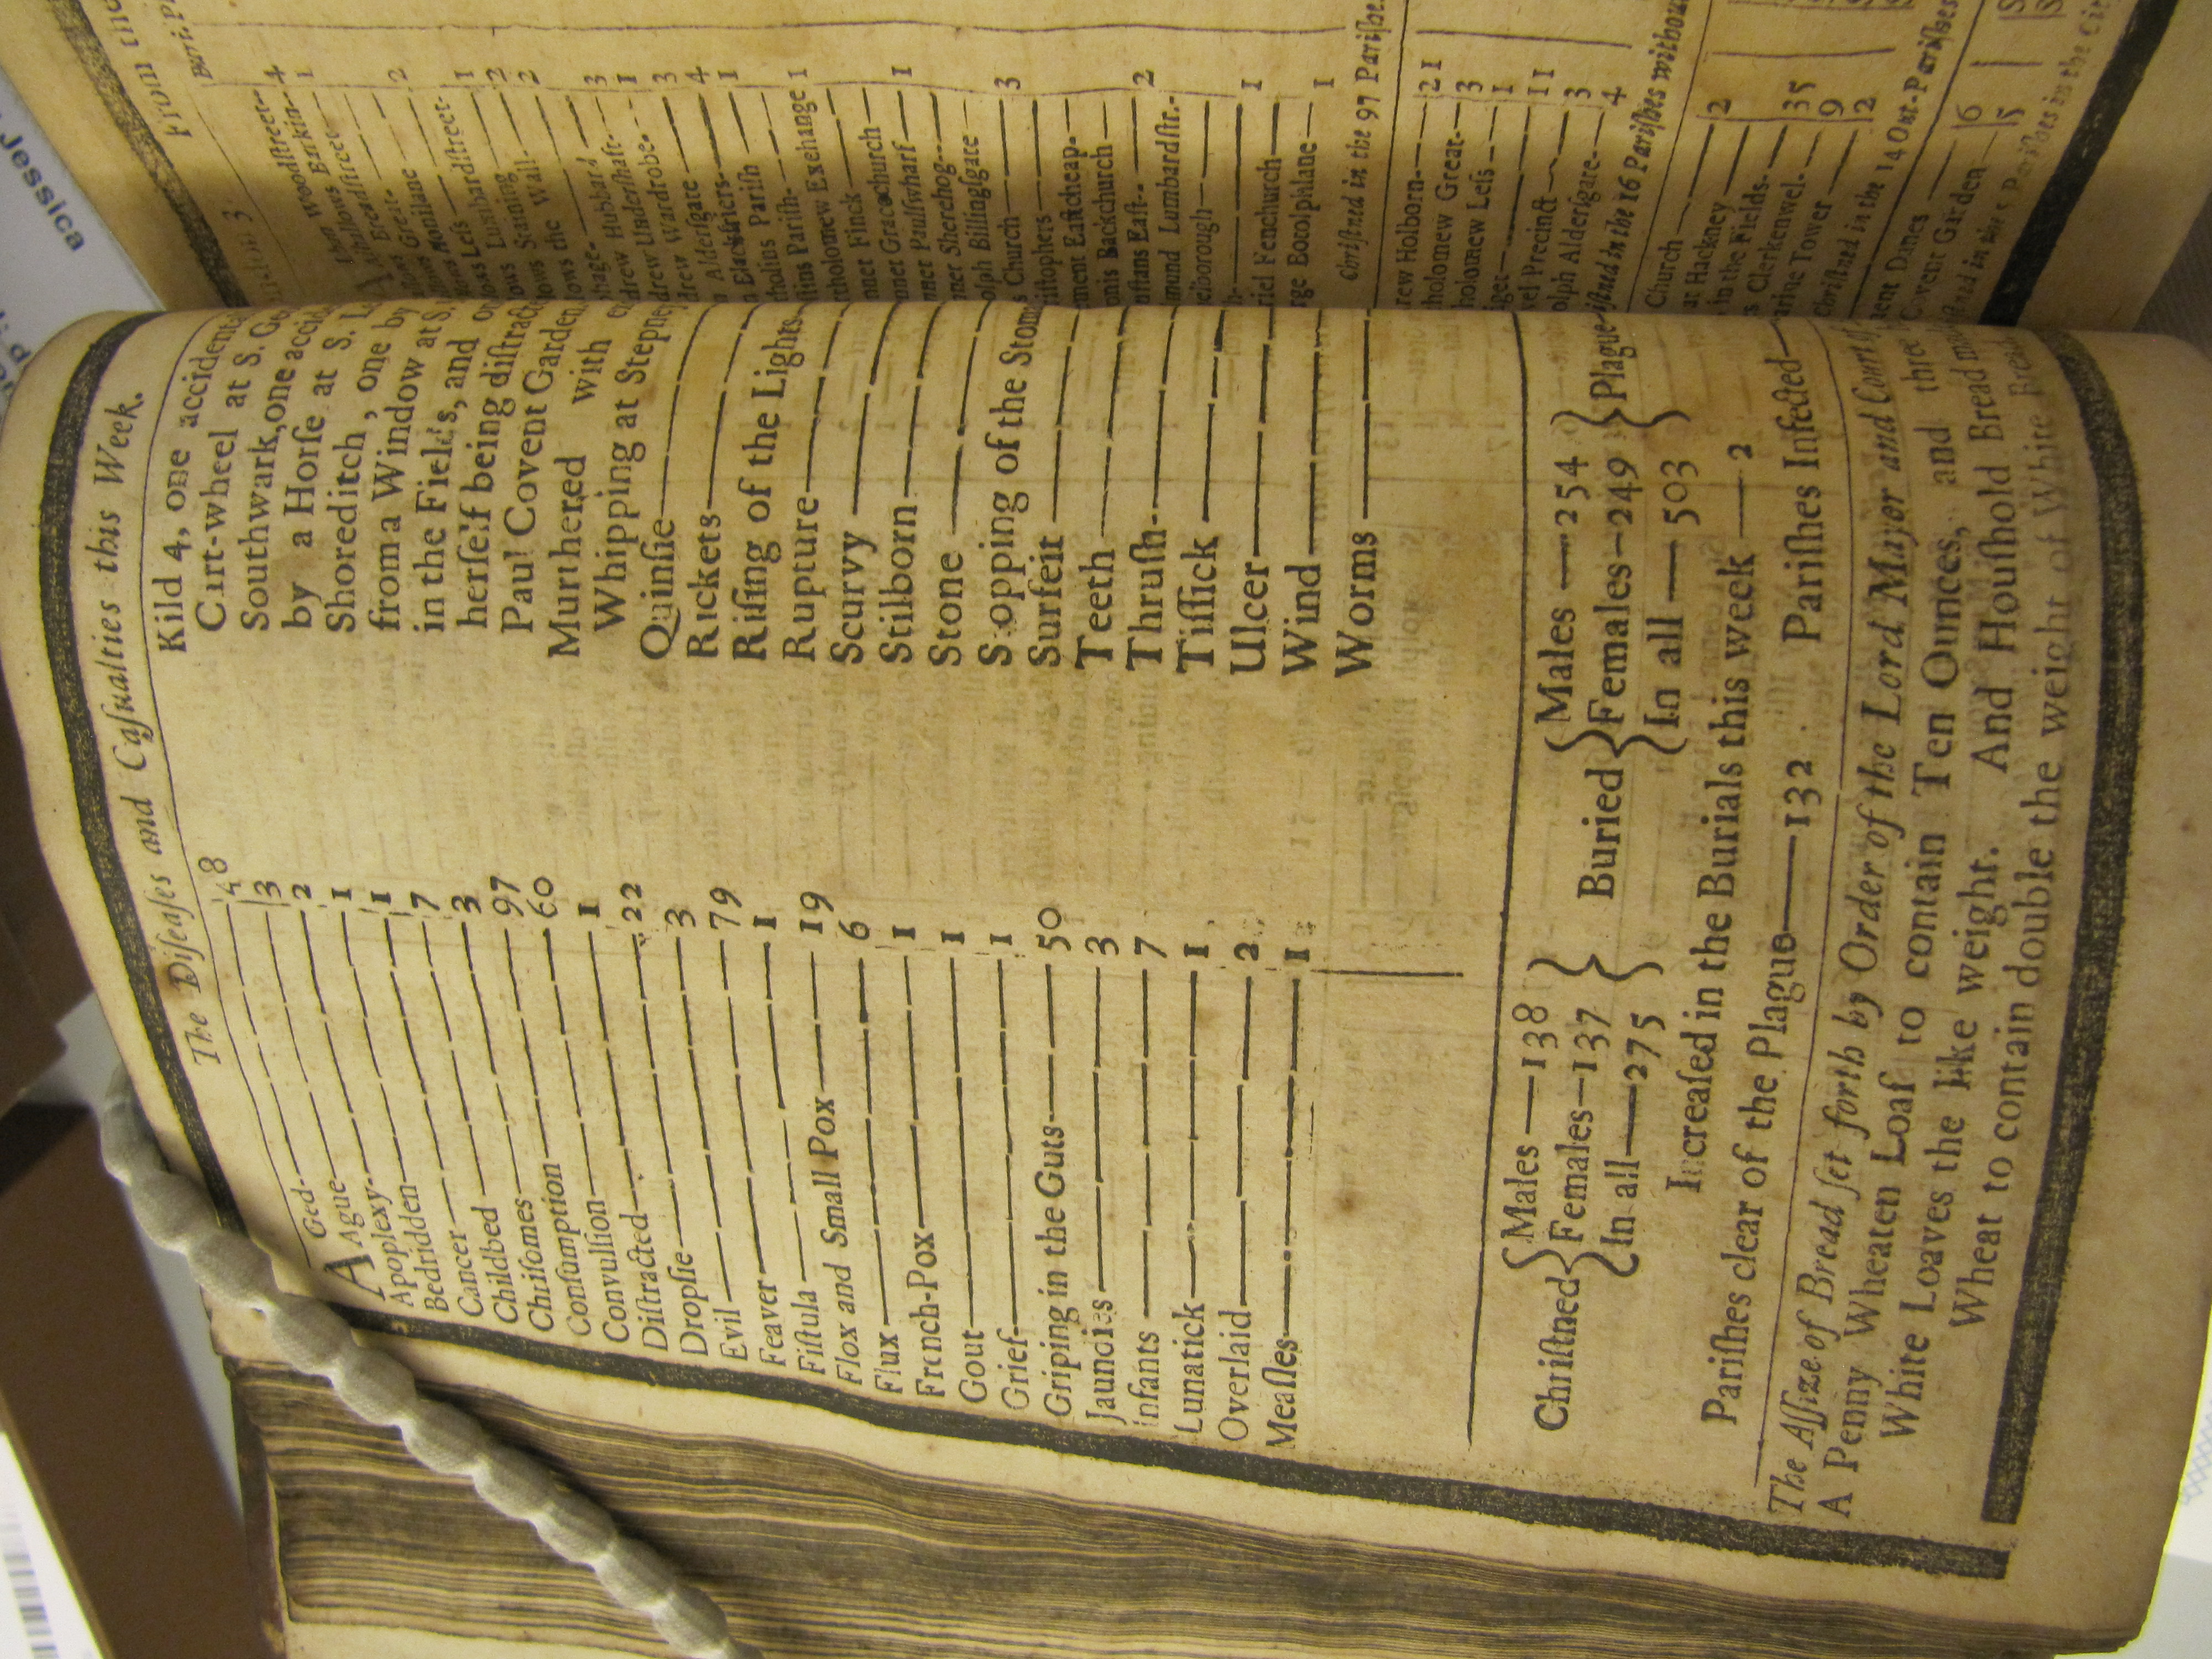 The Diſeaſes and Caſualties this Week.
AGed 48
Ague 3
Apoplexy 2
Bedridden 1
Cancer 1
Childbed 7
Chriſomes 3
Conſumption 97
Convulſion 60
Diſtracted 1
Dropſie 22
Evil 3
Feaver 79
Fiſtula 1
Flox and Small Pox 19
Flux 6
French-Pox 1
Gout 1
Grief 1
Griping in the Guts 50
Jaundies 3
Infants 7
Lunatick 1
Overlaid 2
Meaſles 1
Kild 4, one accident
Cart-wheel at S. Ge
Southwark, one accid
by a Horſe at S. L
Shoreditch, one by
from a Window at S.
in the Fields, and
herſelf being diſtract
Paul Covent Garden
Murthered with
Whipping at Stepney
Quinſie
Rickets
Riſing of the Lights
Rupture
Scurvy
Stilborn
Stone
Stopping of the Stom
Surfeit
Teeth
Thruſh
Tiſſick
Ulcer
Wind
Worms
Chriſtned { Males — 138 Females — 137 In all — 275 } Buried { Males — 254 Females — 249 In all — 503 } Plague
Increaſed in the Burials this week — 2
Pariſhes clear of the Plague — 132 Pariſhes Infected
The Aſſize of Bread ſet forth by Order of the Lord Mayor and Court of
A Penny Wheaten Loaf to contain Ten Ounces, and three
White Loaves the like weight. And Houſhold Bread
Wheat to contain double the weight of White Bread
From the
Woodſtreet 4
Barkin 1
Breadſtreet
Great 2
Honilane
Leſs
Lumbardſtreet 1
Staining 2
the Wall 2
Hubbard 3
Underſhaft 1
Wardrobe 3
Alderſgate 4
Blackfriers 1
Pariſh
Pariſh
tholomew Exchange 1
Finck
Gracechurch
Paulſwharf 1
Sherehog
olph Billingſgate
Church 3
riſtophers
ment Eaſtcheap
onis Backchurch
Eaſt 2
mund Lumbardſtr.
riel Fenchurch 1
rge Botolphlane 1
Chriſtned in the 97 Pariſhe
rew Holborn 21
tholomew Great 3
tholomew Leſs 1
Precinct 11
olph Alderſgate 3
4
iſtned in the 16 Pariſhes without
Church
at Hackney 2
in the Fields 35
s Clerkenwel 9
Tower 2
Chriſtned in the 14 Out-Pariſhes
ent Danes 6
Covent Garden 5
Pariſhes in the Cit
Jessica